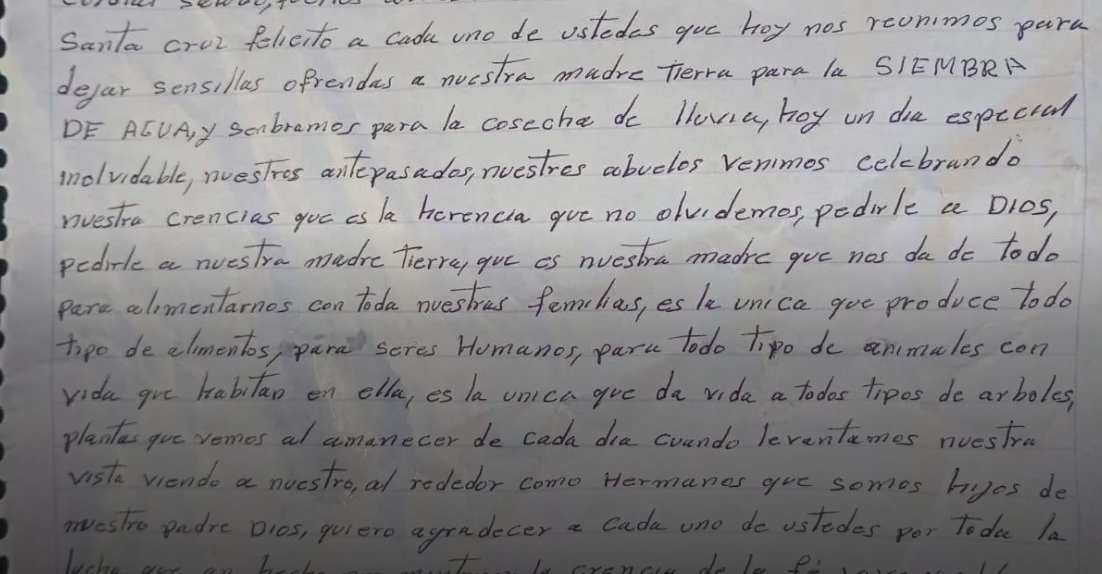 Santa cruz felicito a cada uno de ustedes que Hoy nos reunimos para
dejar sensillas ofrendas a nuestra madre Tierra para la SIEMBRA
DE AGUA, y senbramos para la cosecha de lluvia, hoy un dia especial
inolvidable, nuestros antepasados, nuestros abuelos venimos celebrando
nuestra crencias que es la herencia que no olvidemos, pedirle a DIOS,
pedirle a nuestra madre Tierra, que es nuestra madre que nos da de todo
para alimentarnos con toda nuestras familias, es la unica que produce todo
tipo de alimentos, para seres Humanos, para todo Tipo de animales con
vida que Habitan en ella, es la unica que da vida a todos tipos de arboles,
plantas que vemos al amanecer de cada dia cuando leventamos nuestra
vista viendo a nuestro, al rededor como Hermanos que somos hijos de
nuestro padre DIOS, quiero agradecer a cada uno de ustedes por toda la